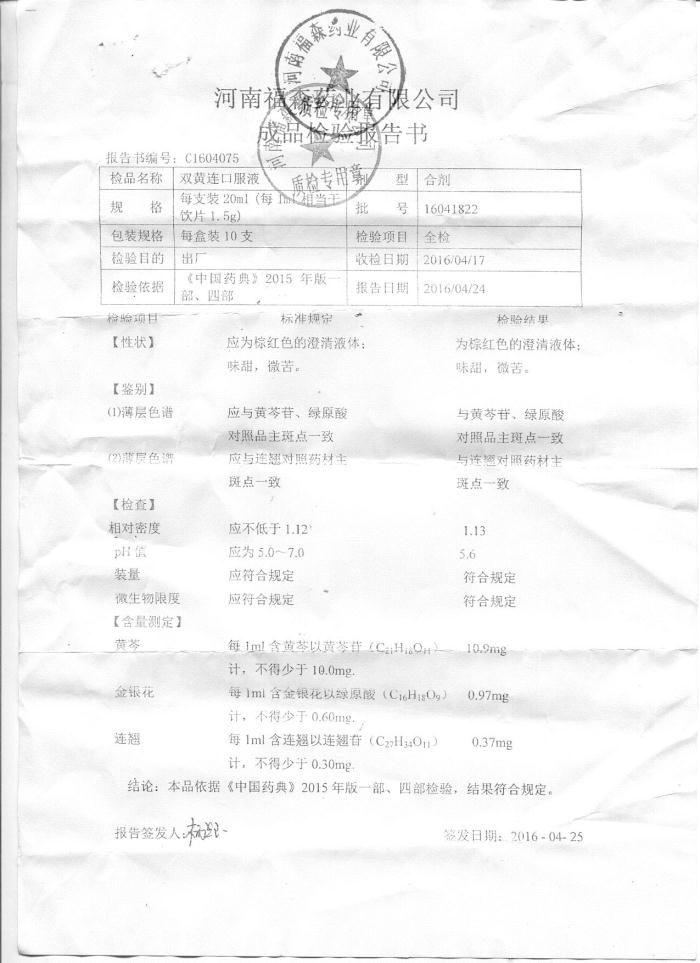 河南福森药业有限公司
质检专用章
河南福森药业有限公司
成品检验报告书
质检专用章
报告书编号：C1604075
检品名称 双黄连口服液 剂 型 合剂
规 格 每支装 20ml (每 1ml 相当于
饮片 1.5g) 批 号 16041822
包装规格 每盒装 10 支 检验项目 全检
检验目的 出厂 收检日期 2016/04/17
检验依据 《中国药典》2015 年版一
部、四部 报告日期 2016/04/24
检验项目 标准规定 检验结果
【性状】 应为棕红色的澄清液体； 为棕红色的澄清液体；
味甜，微苦。 味甜，微苦。
【鉴别】
(1)薄层色谱 应与黄芩苷、绿原酸 与黄芩苷、绿原酸
对照品主斑点一致 对照品主斑点一致
(2)薄层色谱 应与连翘对照药材主 与连翘对照药材主
斑点一致 斑点一致
【检查】
相对密度 应不低于 1.12 1.13
pH 值 应为 5.0～7.0 5.6
装量 应符合规定 符合规定
微生物限度 应符合规定 符合规定
【含量测定】
黄芩 每 1ml 含黄芩以黄芩苷（C21H18O11） 10.9mg
计，不得少于 10.0mg.
金银花 每 1ml 含金银花以绿原酸（C16H18O9） 0.97mg
计，不得少于 0.60mg.
连翘 每 1ml 含连翘以连翘苷（C27H34O11） 0.37mg
计，不得少于 0.30mg.
结论：本品依据《中国药典》2015 年版一部、四部检验，结果符合规定。
报告签发人： 签发日期：2016 - 04- 25